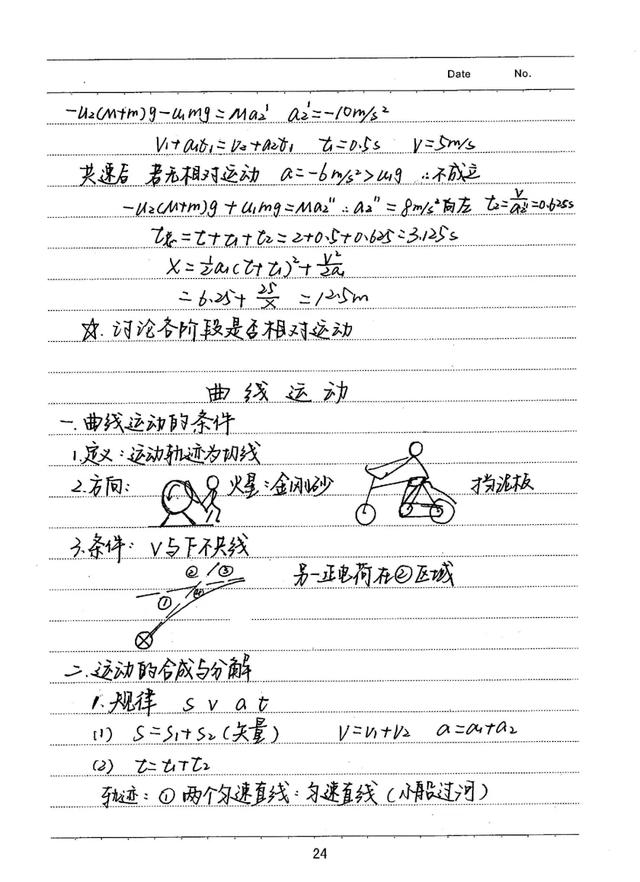 Date No.
-u₂(M+m)g-u₁mg=Ma₂' a₂'=-10m/s²
V₁+a₁t₁=V₂+a₂t₁ t₁=0.5s V=5m/s
共速后 若无相对运动 a=-6m/s²>u₁g ∴不成立
-u₂(M+m)g+u₁mg=Ma₂'' ∴a₂''=8m/s²向左 t₂=V/a₂''=0.625s
t总=t+t₁+t₂=2+0.5+0.625=3.125s
X=½a₁(t+t₁)²+V²/2a₁
=6.25+ =12.5m
☆.讨论各阶段是否相对运动
曲线运动
一.曲线运动的条件
1.定义:运动轨迹为切线
2.方向: 火星:金刚砂 挡泥板
3.条件: V与F不共线
② ③
① ④ 另一正电荷在②区域
二.运动的合成与分解
1.规律 s v a t
(1) S=S₁+S₂(矢量) V=V₁+V₂ a=a₁+a₂
(2) t=t₁+t₂
轨迹:①两个匀速直线:匀速直线(小船过河)
24